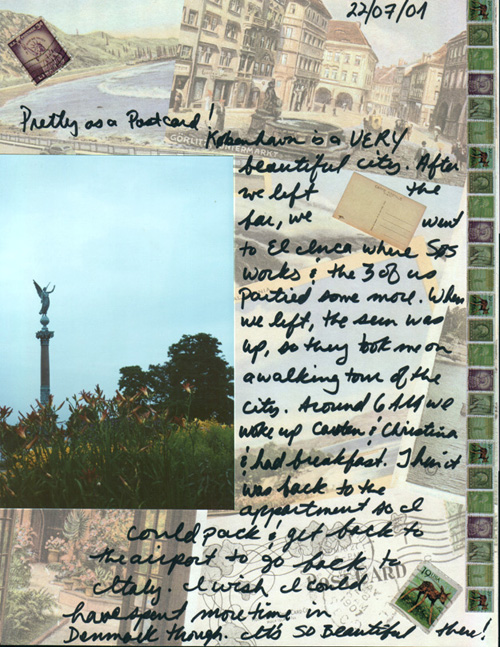 22/07/01
Pretty as a Postcard!
København is a VERY
beautiful city. After
we left the
bar, we went
to El Inca where Sos
works & the 3 of us
Partied some more. When
we left, the sun was
up, so they took me on
a walking tour of the
city. Around 6 AM we
woke up Carsten & Christina
& had breakfast. Then it
was back to the
appartment so I
could pack & get back to
the airport to go back to
Italy. I wish I could
have spent more time in
Denmark though. It's SO Beautiful there!